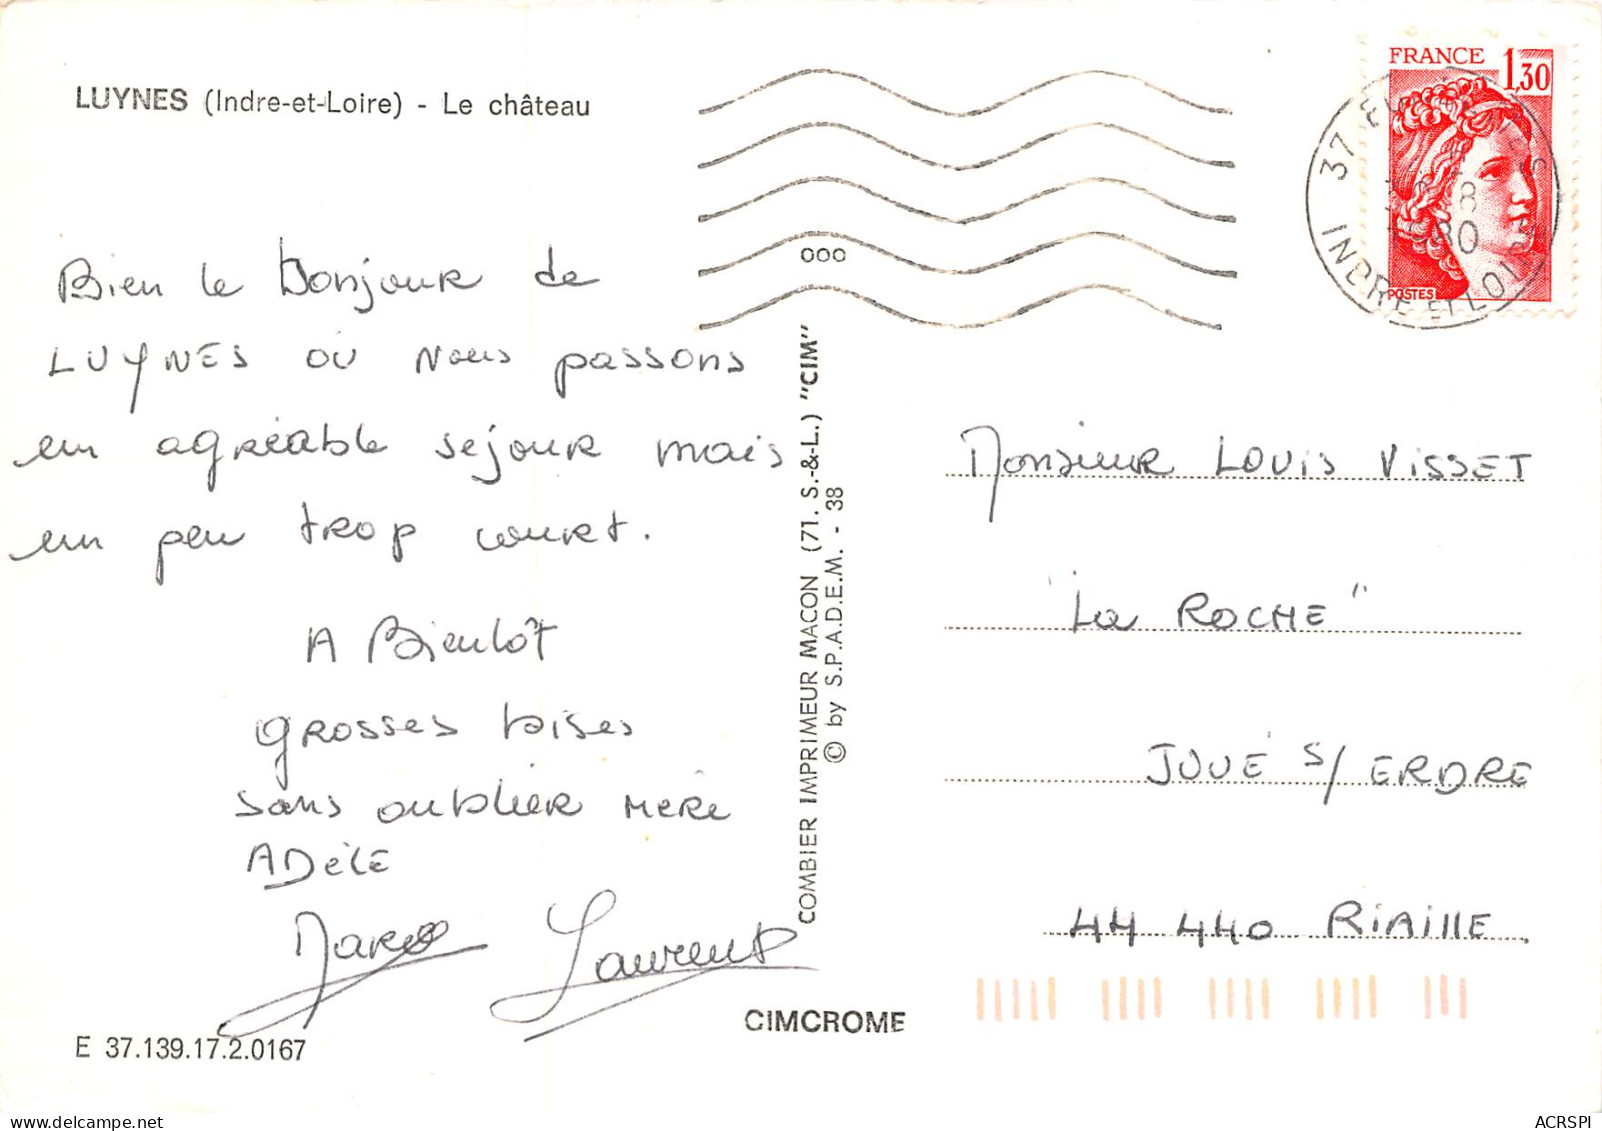 LUYNES (Indre-et-Loire) - Le château
Bien le bonjour de
LUYNES où nous passons
un agréable séjour mais
un peu trop court.
A Bientôt
grosses bises
sans oublier Mère
ADèLE
Laurent
E 37.139.17.2.0167
CIMCROME
COMBIER IMPRIMEUR MACON (71. S.-&-L.) "CIM"
© by S.P.A.D.E.M. - 38
000
FRANCE 1,30
POSTES
37
80
INDRE ET LOIRE
Monsieur Louis VISSET
"La ROCHE"
JOUÉ S/ ERDRE
44 440 RiAillE
ACRSPI
delcampe.net